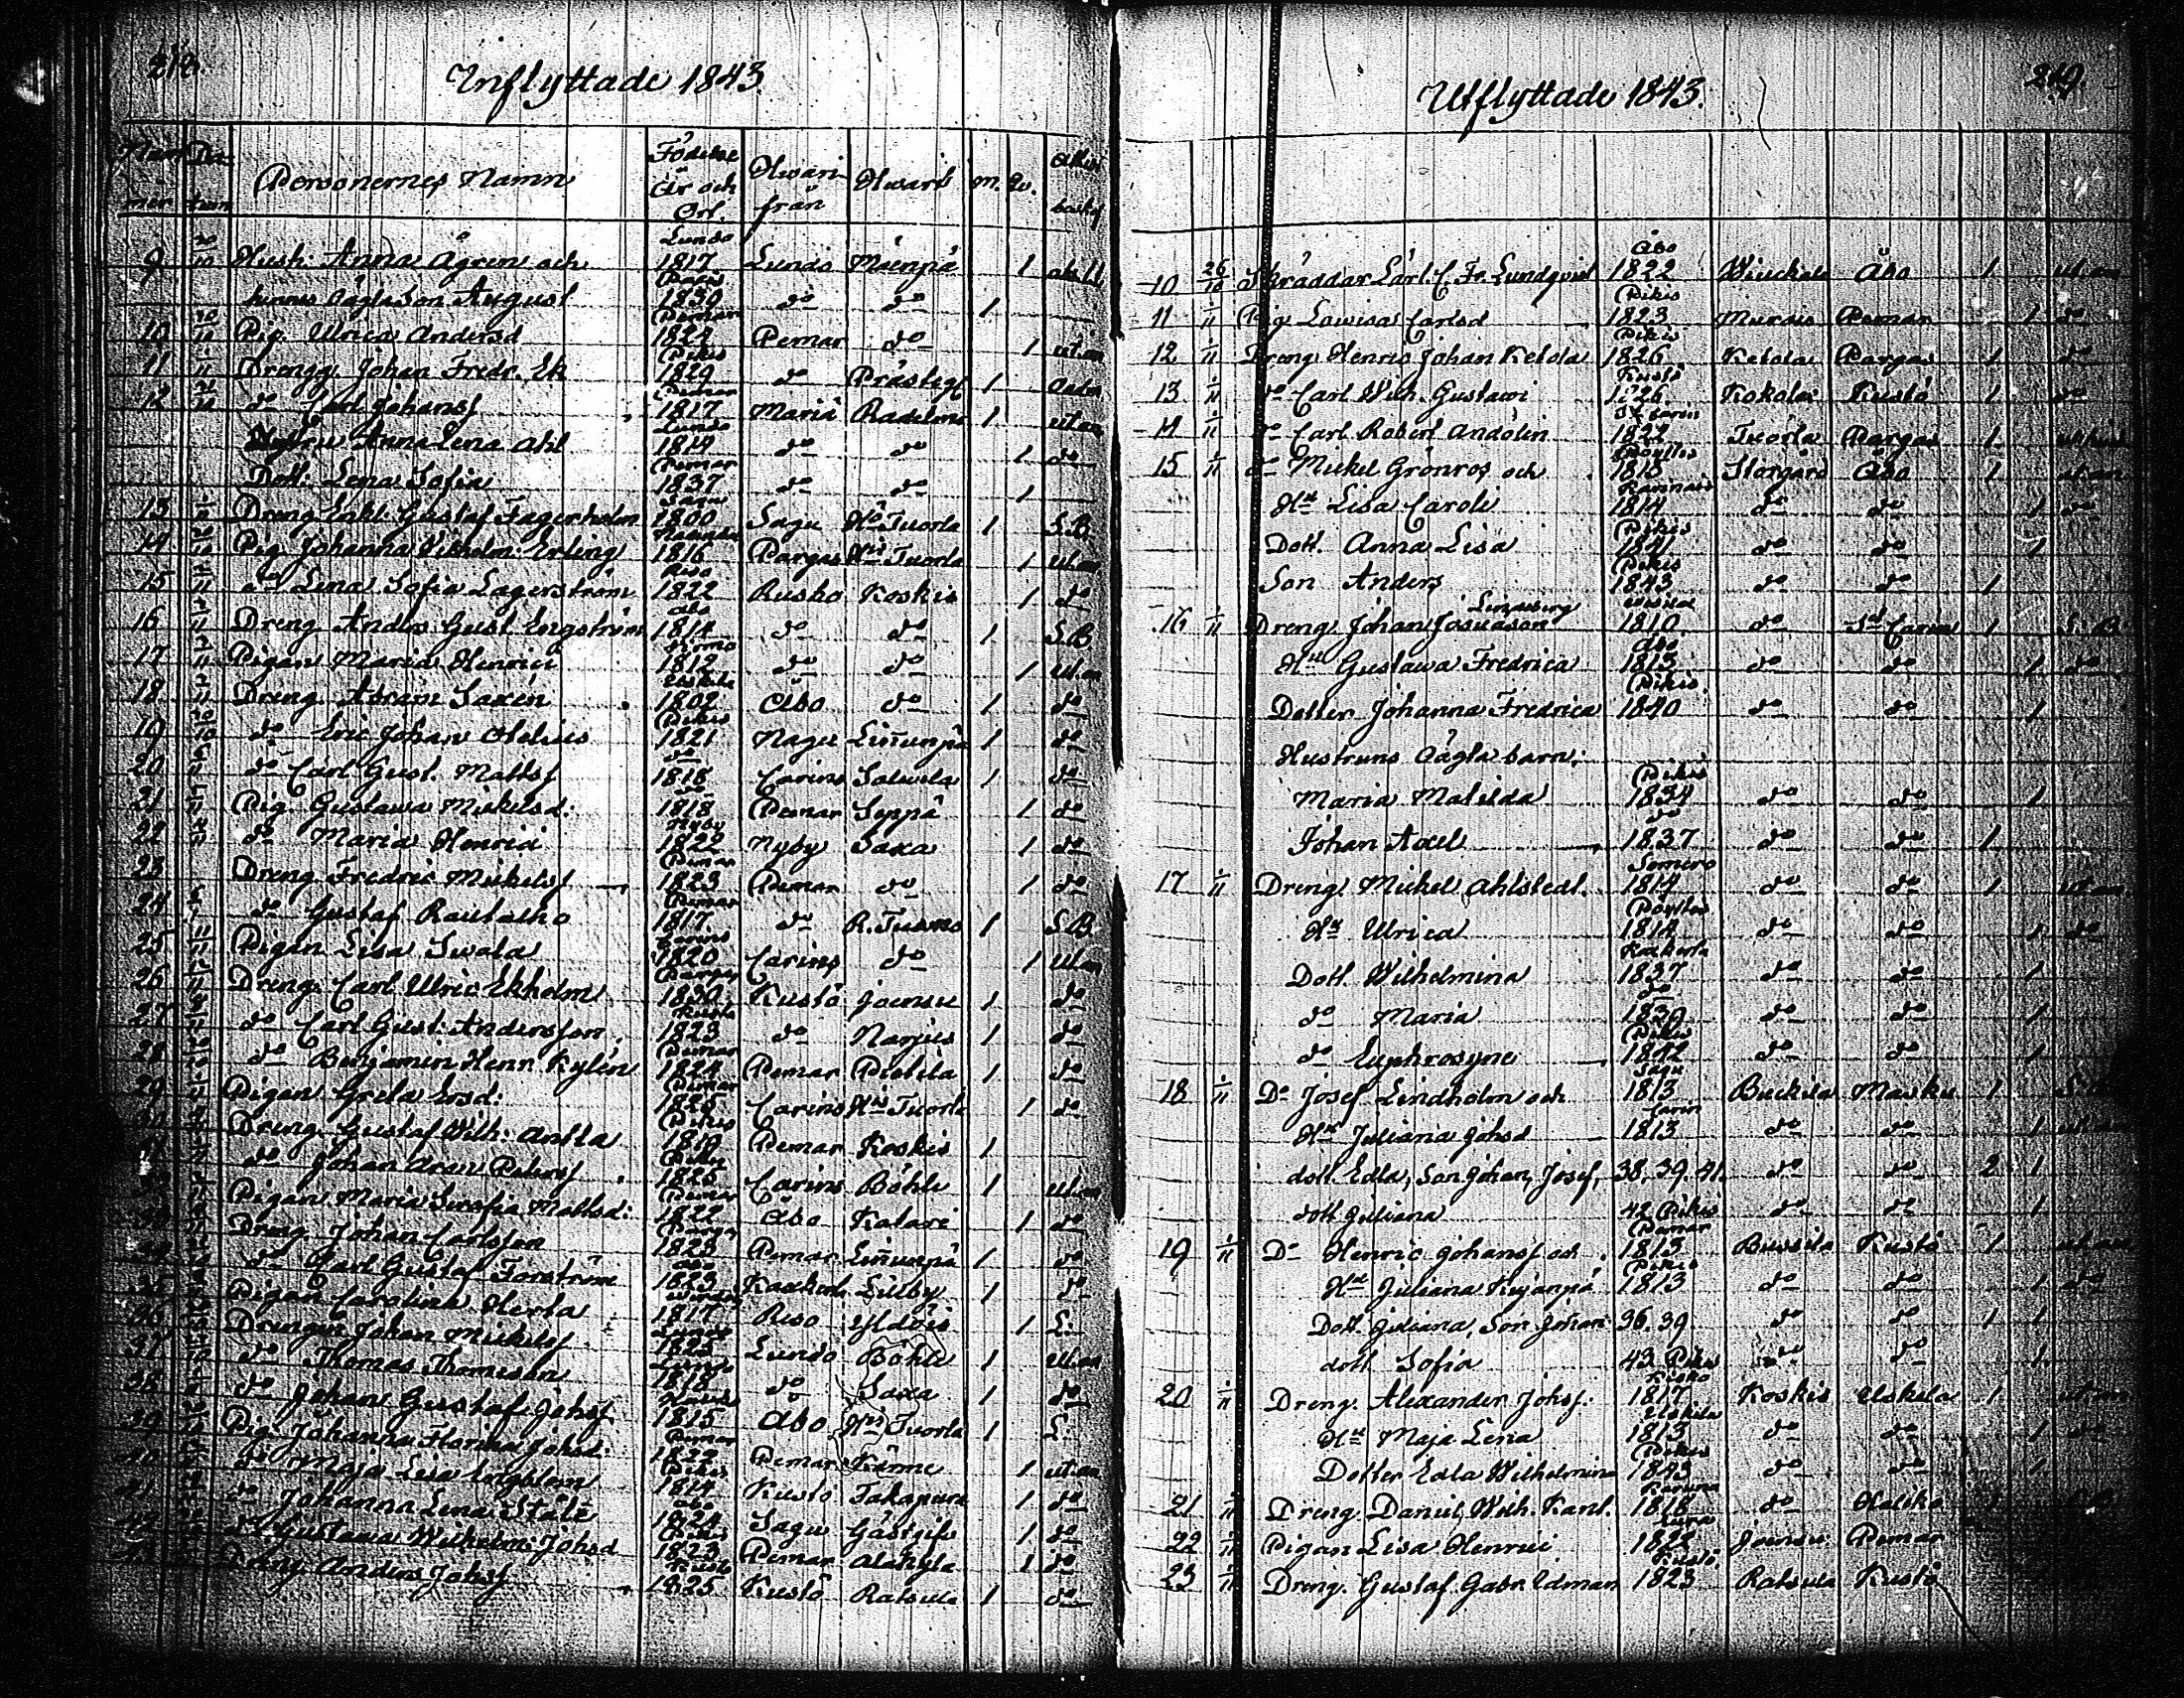 218.
Inflyttade 1843.
Nummer Datum Personernes Namn Födelse År och Ort. Hvarifrån Hvart M. Qv.
9 Hush. Anna Ågren och Lundo 1817 Lundo Mäenpä 1
hennes oägta Son August 1839 do do 1
10 Pig. Ulrica Andersd Pemar 1824 Pemar do 1 utan
11 Drengg Johan Fredr. Ek Pikis 1829 do Prästeg 1
12 do Carl Johansf Pemar 1817 Mariæ Radelma 1 utan
Hustru Anna Lena Ahl Lundo 1819 do do 1 do
Dott. Lena Sofia Pemar 1837 do do 1
13 Dreng Enkl. Gustaf Fagerholm Sagu 1800 Sagu Ho Tuorla 1 S.B.
14 Pig. Johanna Wilhelm. Erling 1816 Pargas Tuorla 1 utan
15 do Lena Sofia Lagerström Reso 1822 Rusko Koskis 1 do
16 Dreng Anders Gust. Engström Åbo 1814 do do 1 S.B.
17 Pigan Maria Henrici 1812 do do 1 utan
18 Dreng Abram Saxén 1802 Åbo do 1 do
19 do Eric Johan Olelius Pikis 1821 Nagu Linunpä 1 do
20 do Carl Gust. Mattsf do 1818 Carins Salvela 1 do
21 Pig. Gustawa Mickelsd: do 1818 Pemar Seppä 1 do
22 do Maria Henrici Nyby 1822 Nyby Saxa 1 do
23 Dreng Fredric Mickelsf Pemar 1823 Pemar do 1 do
24 do Gustaf Rautalko Pemar 1817 do R. Tuomo 1 S.B.
25 Pigan Lisa Swala Carins 1820 Carins do 1 utan
26 Dreng. Carl Ulric Ekholm Pargas 1830 Kustö Joensu 1 do
27 do Carl Gust. Andersson Kustö 1823 do Narjus 1 do
28 do Benjamin Henr. Kylén Pemar 1824 Pemar Pietila 1 do
29 Pigan Greta Ersd: Pemar 1825 Carins Tuorla 1 do
30 Dreng. Gustaf Wilh: Antta Pikis 1819 Pemar Koskis 1
31 do Johan Petersf 1825 Carins Böhle 1 utan
32 Pigan Maria Serafia Mattsd: Pemar 1822 Åbo Katari 1 do
33 Dreng Johan Carlsson 1823 Pemar Linunpä 1 do
34 do Carl Gustaf Forström Åbo 1823 Lilby 1 do
35 Pigan Carolina Herta 1817 Reso Yldöis 1 L.
36 Drengen Johan Mickelsf Lundo 1825 Lundo Böhle 1 utan
37 do Thomas Thomson Lundo 1818 do Saxa 1 do
38 do Johan Gustaf Johsf 1815 Åbo Tuorla 1 L.
39 Pig. Johanna Florina Johsd: Pemar 1822 Pemar Kärme 1 utan
40 do Maja Lisa Engblom Pikis 1814 Kustö 1 do
41 do Johanna Lena Ståle Åbo 1824 Sagu Gästgif. 1 do
42 do Gustawa Wilhelm. Johsd Pikis 1823 Pemar Alakyla 1 do
43 Dreng Anders Johsf Kustö 1825 Kustö Ratsula 1 do
219.
Utflyttade 1843.
10 26/10 Skräddar Lärl. C. Fr. Lundqvist Åbo 1822 Åbo 1 utan
11 1/11 Pig Lowisa Carlsd Pikis 1823 Murois Pemar 1 do
12 1/11 Dreng Henric Johan Ketola Pikis 1826 Ketola Pargas 1 do
13 1/11 do Carl Wilh. Gustawi Kustö 1826 Kokola Kustö 1 do
14 1/11 do Carl Robert Andolin St. Carin 1822 Tuorla Pargas 1
15 1/11 do Mickel Grönros och Pöyttis 1818 Storgård Åbo 1 utan
Hu Lisa Caroli 1814 do do 1 do
Dott. Anna Lisa Pikis 1841 do do 1
Son Anders Pikis 1843 do do 1
16 1/11 Dreng Johan Josuason Lindeberg 1810 do St. Carin 1 S.B.
Hu Gustawa Fredrica Åbo 1813 do do 1 do
Dotter Johanna Fredrica Pikis 1840 do do 1
Hustruns oägta barn:
Maria Matilda Pikis 1834 do do 1
Johan Axel do 1837 do do 1
17 1/11 Dreng Mickel Ahlstedt. Somero 1814 do do 1 utan
Hu Ulrica Pöyttis 1814 do do 1 do
Dott. Wilhelmina 1837 do do 1
do Maria do 1839 do do 1
do Euphrosyne Pikis 1842 do do 1
18 1/11 Do Josef Lindholm och Sagu 1813 Buckila Masku 1
Hu Juliana Johsd Carin 1813 do do 1 utan
dott Edla, Son Johan, Josef, 38. 39. 41. do do 2 1
dott Juliana 42 Pikis do do 1
19 1/11 Do Henric Johansf och Pemar 1813 Bussila Kustö 1 utan
Hu Juliana Kujanpä Pikis 1813 do do 1 do
Dott. Juliana, Son Johan 36. 39 do do 1 1
dott Sofia 43 Pikis do do 1
20 1/11 Dreng. Alexander Johsf: Kisko 1817 Koskis Uskela 1 utan
Hu Maja Lena Uskela 1813 do do 1 do
Dotter Edla Wilhelmina Pikis 1843 do do 1
21 Dreng. Daniel Wilh. Karl. Karuna 1818 do Haliko 1
22 Pigan Lisa Henrici 1822 Joensu Pemar
23 Dreng. Gustaf Gabr. Edman Kustö 1823 Ratsula Kustö